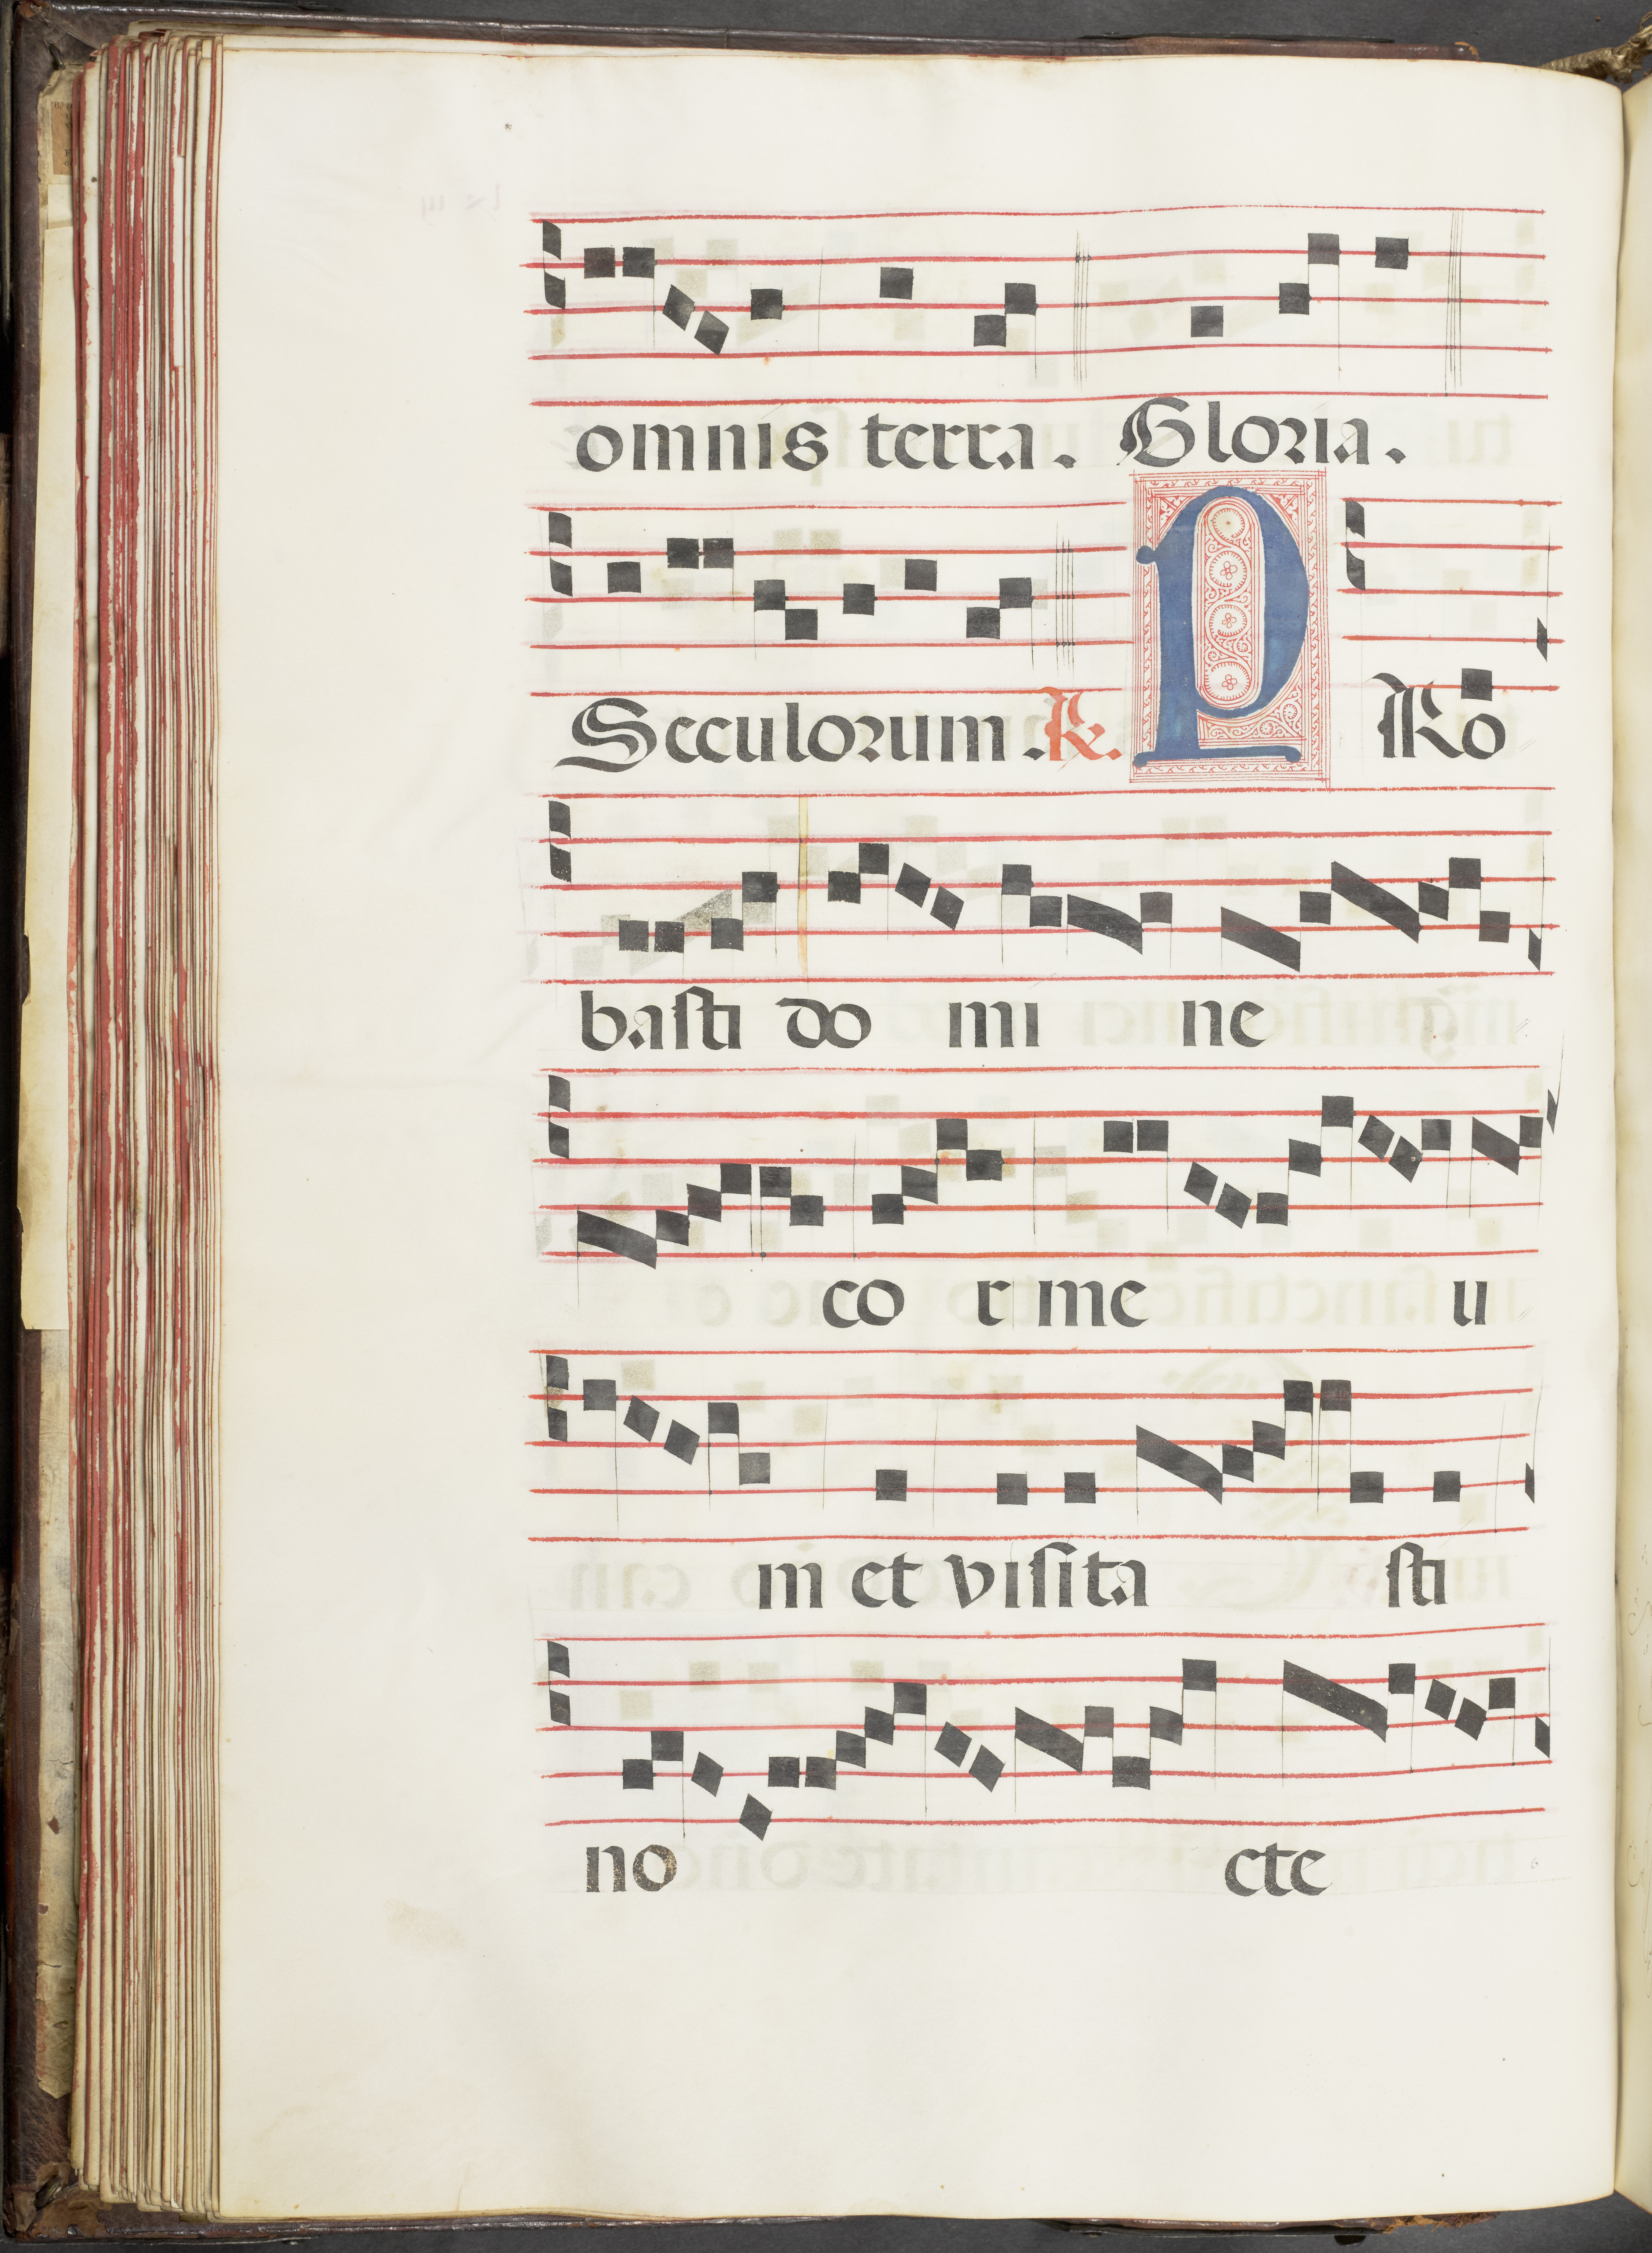 omnis terra. Gloria.
Seculorum. R. PRo
basti do mi ne
co r me u
m et visita sti
no cte